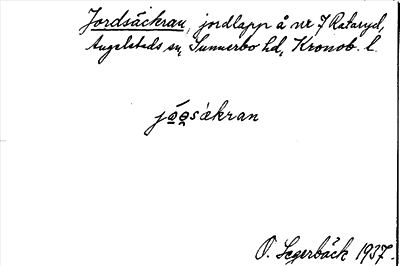 Jordsäckran, jordlapp å nr 7 Rataryd,
Angelstads sn, Sunnerbo hd, Kronob. l.
jo̱o̱sákran
O. Segerbäck 1937.